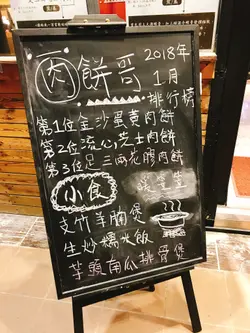 肉餅哥
2018年
1月
排行榜
第1位金沙蛋黃肉餅
第2位流心芝士肉餅
第3位足三兩花腩肉餅
小食
暖笠笠
支竹羊腩煲
生炒糯米飯
芋頭南瓜排骨煲